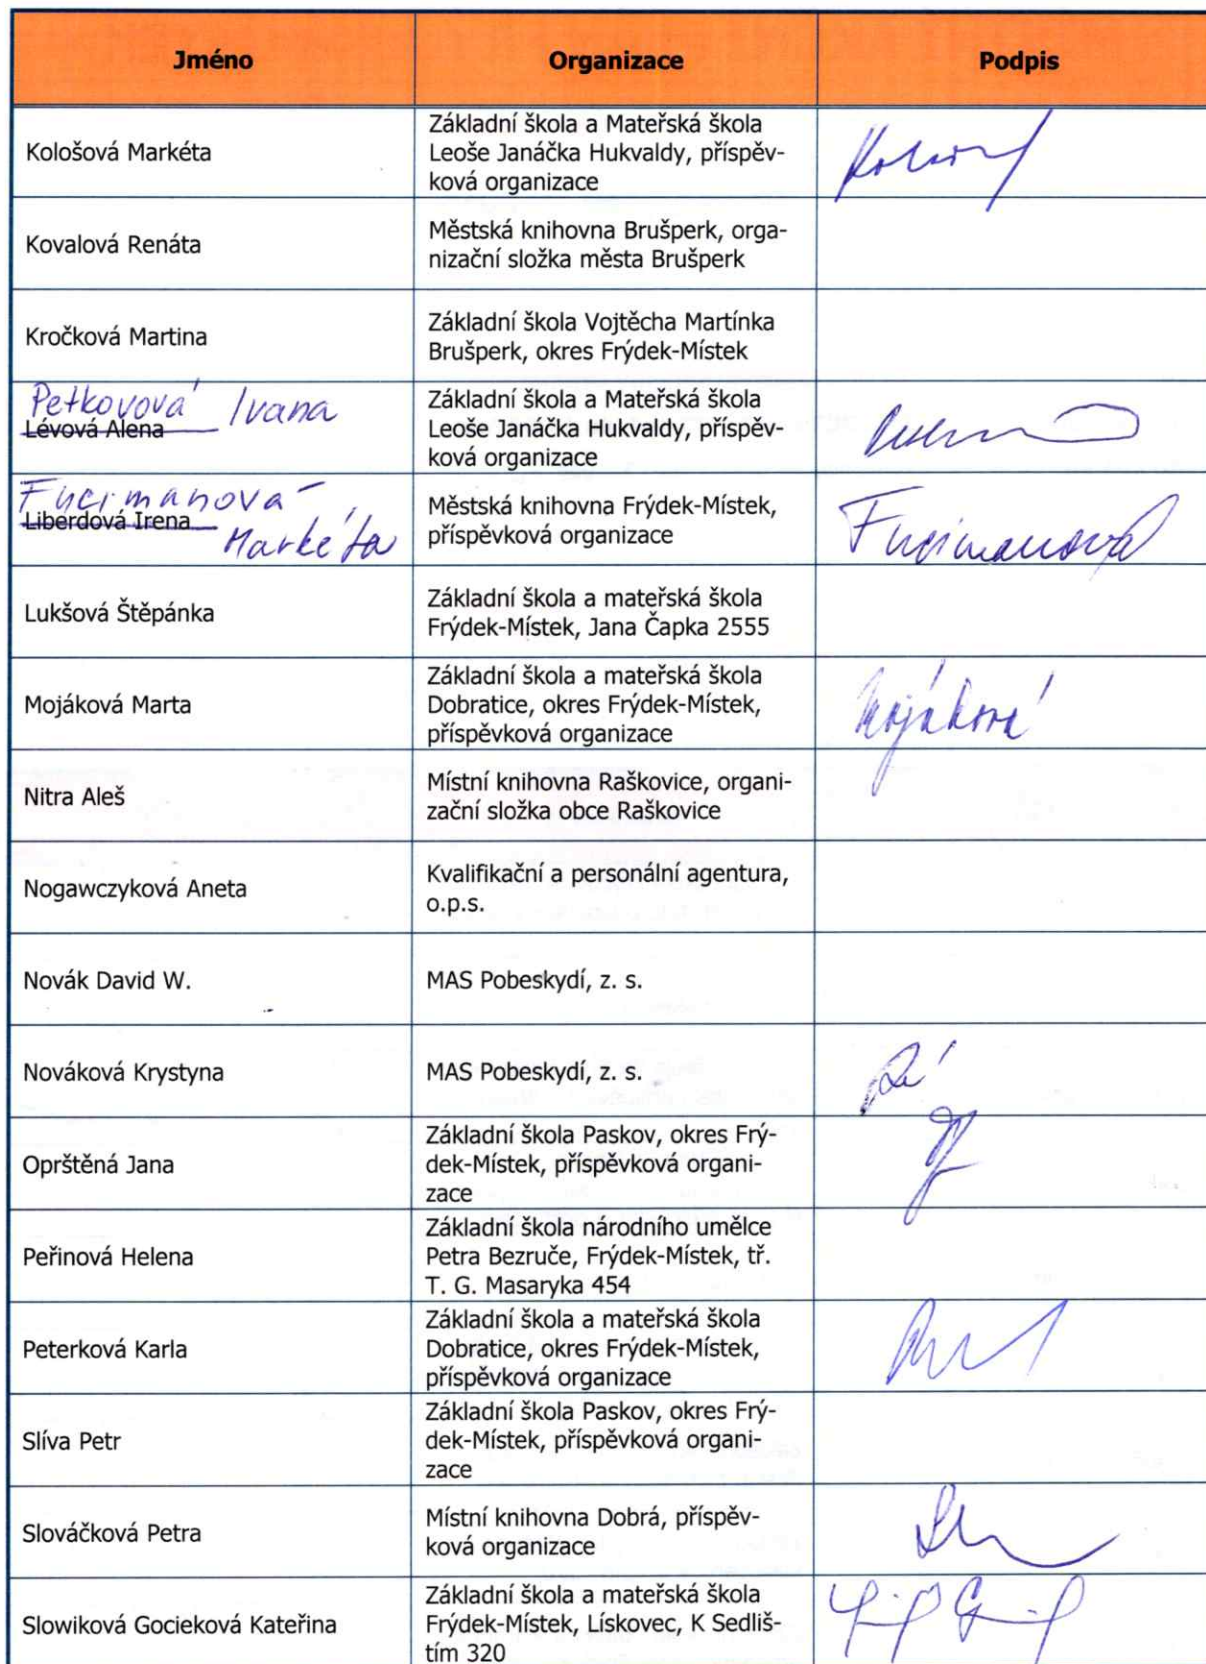 Jméno Organizace Podpis
Kološová Markéta
Základní škola a Mateřská škola
Leoše Janáčka Hukvaldy, příspěv-
ková organizace
Kovalová Renáta
Městská knihovna Brušperk, orga-
nizační složka města Brušperk
Kročková Martina
Základní škola Vojtěcha Martínka
Brušperk, okres Frýdek-Místek
Petkovová Ivana
Lévová Alena
Základní škola a Mateřská škola
Leoše Janáčka Hukvaldy, příspěv-
ková organizace
Fucimanová
Liberdová Irena
Markéta
Městská knihovna Frýdek-Místek,
příspěvková organizace
Fucimanová
Lukšová Štěpánka
Základní škola a mateřská škola
Frýdek-Místek, Jana Čapka 2555
Mojáková Marta
Základní škola a mateřská škola
Dobratice, okres Frýdek-Místek,
příspěvková organizace
Mojáková
Nitra Aleš
Místní knihovna Raškovice, organi-
zační složka obce Raškovice
Nogawczyková Aneta
Kvalifikační a personální agentura,
o.p.s.
Novák David W.
MAS Pobeskydí, z. s.
Nováková Krystyna
MAS Pobeskydí, z. s.
Oprštěná Jana
Základní škola Paskov, okres Frý-
dek-Místek, příspěvková organi-
zace
Peřinová Helena
Základní škola národního umělce
Petra Bezruče, Frýdek-Místek, tř.
T. G. Masaryka 454
Peterková Karla
Základní škola a mateřská škola
Dobratice, okres Frýdek-Místek,
příspěvková organizace
Slíva Petr
Základní škola Paskov, okres Frý-
dek-Místek, příspěvková organi-
zace
Slováčková Petra
Místní knihovna Dobrá, příspěv-
ková organizace
Slowiková Gocieková Kateřina
Základní škola a mateřská škola
Frýdek-Místek, Lískovec, K Sedliš-
tím 320